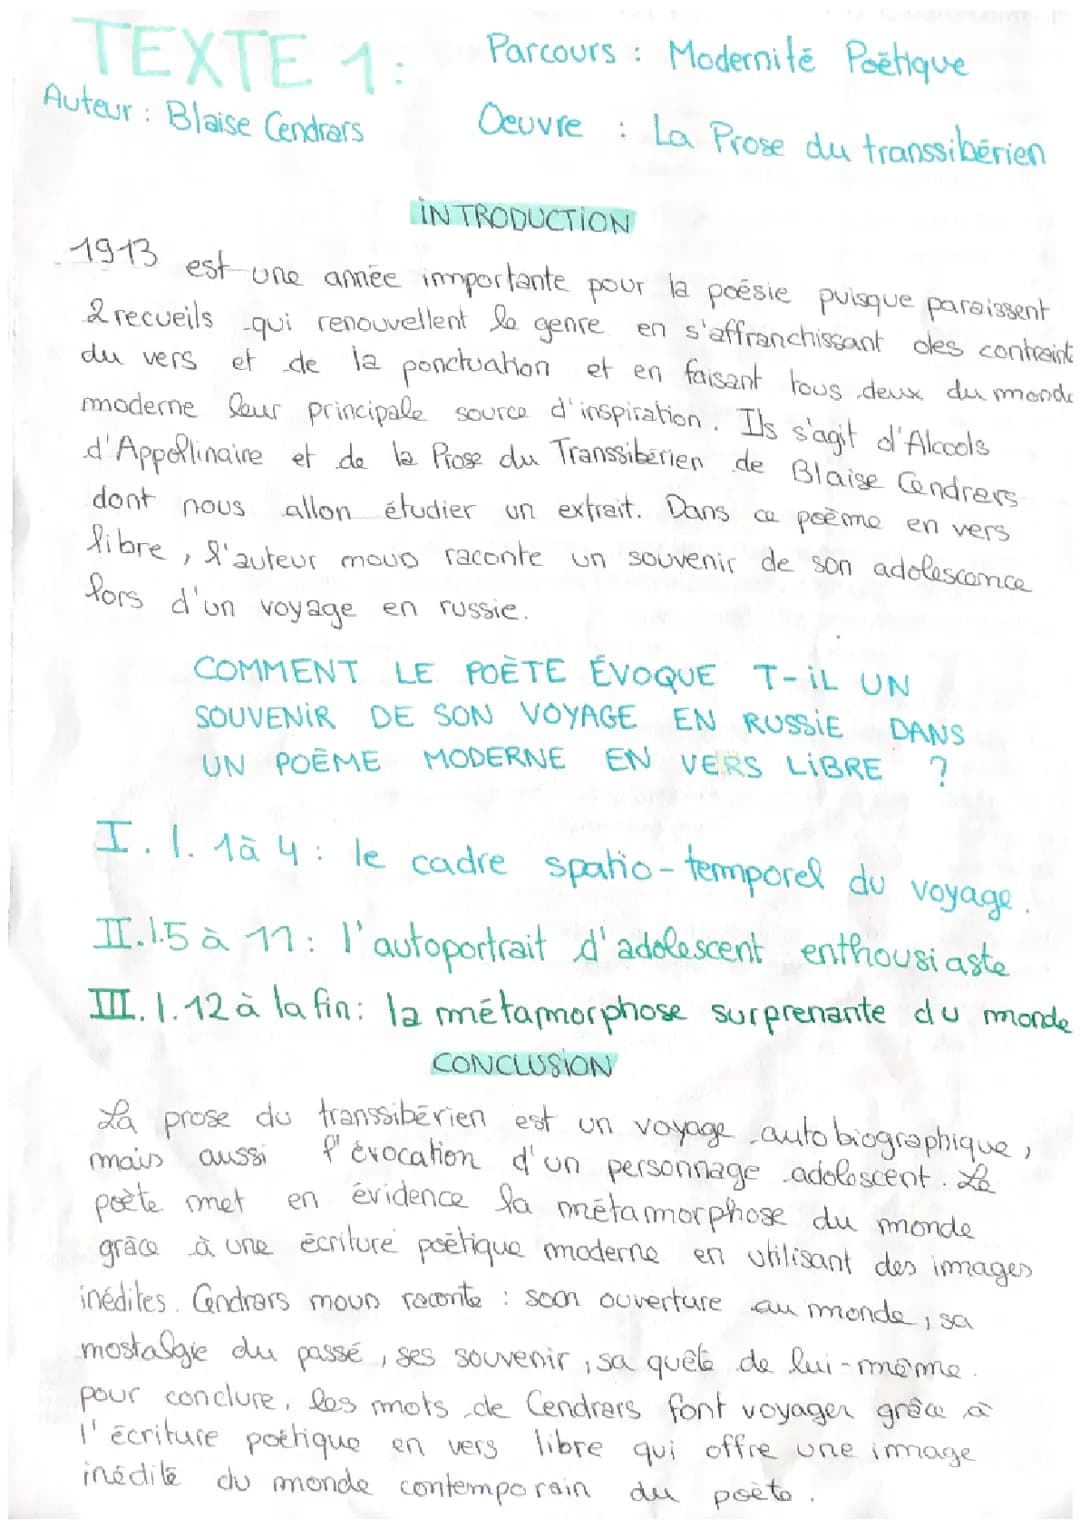 TEXTE 1:
Parcours : Modernité Poëtique
Auteur : Blaise Cendrars
Oeuvre : La Prose du transsibérien
INTRODUCTION
1913 est une année importante pour la poésie puisque paraissent
2 recueils qui renouvellent le genre en s'affranchissant des contraint
du vers et de la ponctuation et en faisant tous deux du monde
moderne leur principale source d'inspiration. Ils s'agit d'Alcools
d'Appollinaire et de la Prose du Transsibérien de Blaise Cendrers
dont nous allon étudier un extrait. Dans ce poème en vers
libre, l'auteur nous raconte un souvenir de son adolescence
lors d'un voyage en russie.
COMMENT LE POÈTE ÉVOQUE T-IL UN
SOUVENIR DE SON VOYAGE EN RUSSIE DANS
UN POËME MODERNE EN VERS LIBRE ?
I. l. 1à 4 : le cadre spatio-temporel du voyage.
II. l.5 à 11 : l'autoportrait d'adolescent enthousiaste
III. l. 12 à la fin : la métamorphose surprenante du monde
CONCLUSION
La prose du transsibérien est un voyage autobiographique,
mais aussi l'évocation d'un personnage adolescent. Le
poète met en évidence la métamorphose du monde
grâce à une écriture poëtique moderne en utilisant des images
inédites. Cendrars nous raconte : soon ouverture au monde, sa
nostalgie du passé, ses souvenir, sa quête de lui-même.
pour conclure, les mots de Cendrars font voyager grâce à
l'écriture poëtique en vers libre qui offre une image
inédité du monde contemporain du poète.